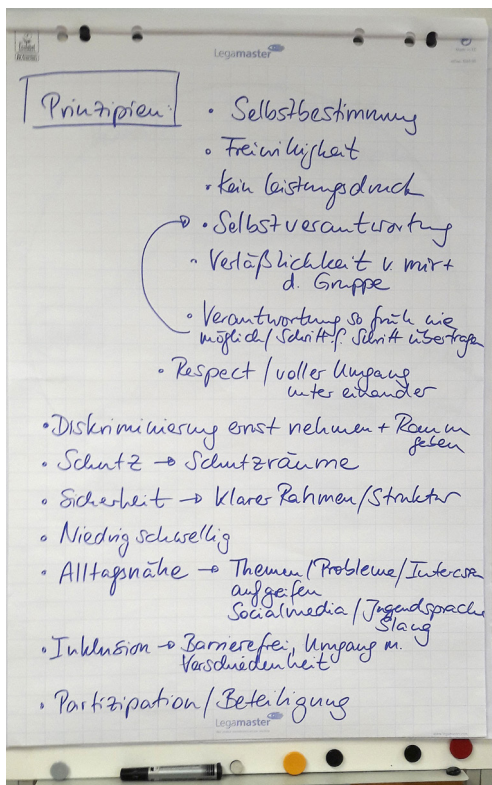 Legamaster
Prinzipien:
• Selbstbestimmung
• Freiwilligkeit
• Kein Leistungsdruck
• Selbstverantwortung
• Verläßlichkeit v. mir +
d. Gruppe
• Verantwortung so früh wie
möglich / Schritt f. Schritt übertragen
• Respect / voller Umgang
untereinander
• Diskriminierung ernst nehmen + Raum
geben
• Schutz → Schutzräume
• Sicherheit → klarer Rahmen / Struktur
• Niedrigschwellig
• Alltagsnähe → Themen / Probleme / Interessen
aufgreifen
Socialmedia / Jugendsprache
Slang
• Inklusion → Barrierefrei, Umgang m.
Verschiedenheit
• Partizipation / Beteiligung
Legamaster